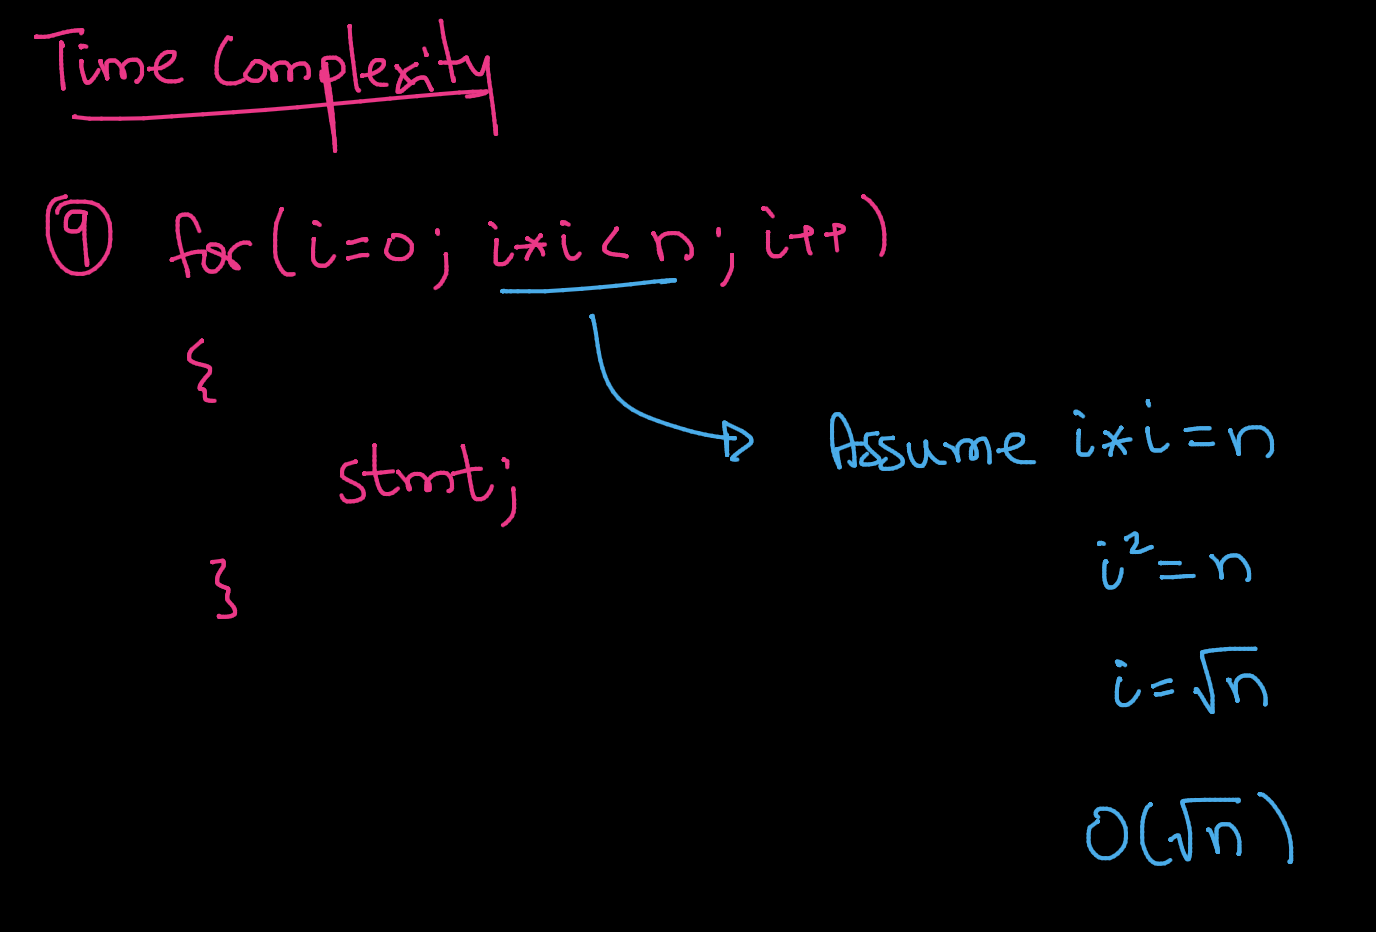 Time Complexity
9 for(i=0; i*i<n; i++)
{
stmt;
}
Assume i*i=n
i²=n
i=√n
O(√n)